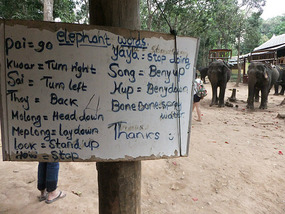 elephant words
pai = go
kwar = Turn right
Sai = Turn left
Thoy = Back
Molong = Head down
Meplong = lay down
look = Stand up
How = Stop
yaya = Stop doing
Song = Beny up
Hup = Beny down
Bone Bone = spray
water
Thanks